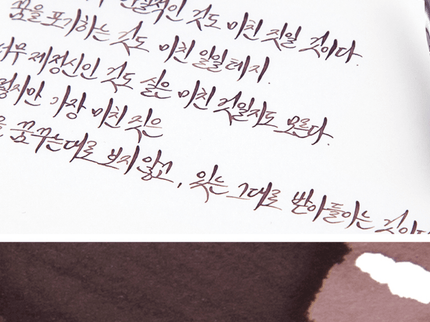 것도 미친 짓일 것이다.
꿈을 포기하는 것도 미친 일일테지.
너무 제정신인 것도 실은 미친 것일지도 모른다.
가장 미친 짓은
꿈꾸는대로 보지 않고, 있는 그대로 받아들이는 것이